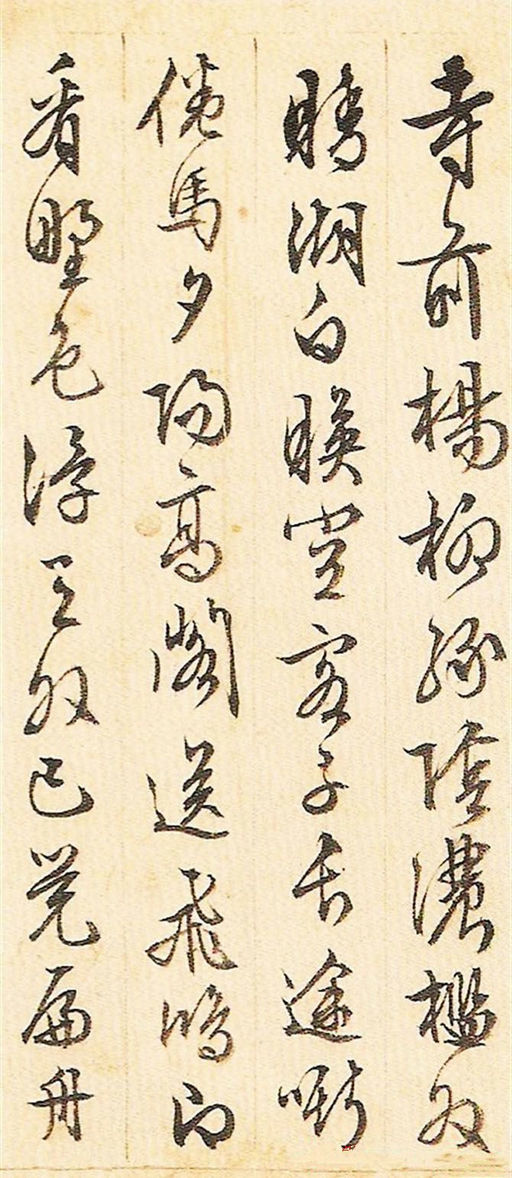 寺前楊柳綠陰濃檻外
晴湖白暎空客子長途嘶
倦馬夕陽高閣送飛鴻即
看野色浮天外已覺扁舟